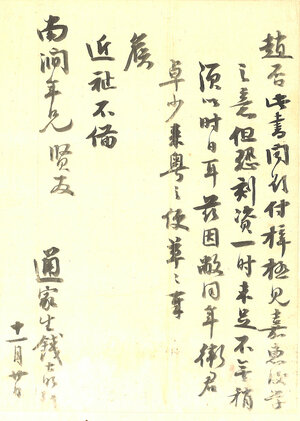 否此書聞欲付梓極見嘉惠後學
之意但恐刻資一时未足不無稍
須以时日耳茲因敝同年衛君
卓少來粵之便草〻奉
候
近祉不備
南澗年兄賢友
通家生錢大昕
十一月廿日